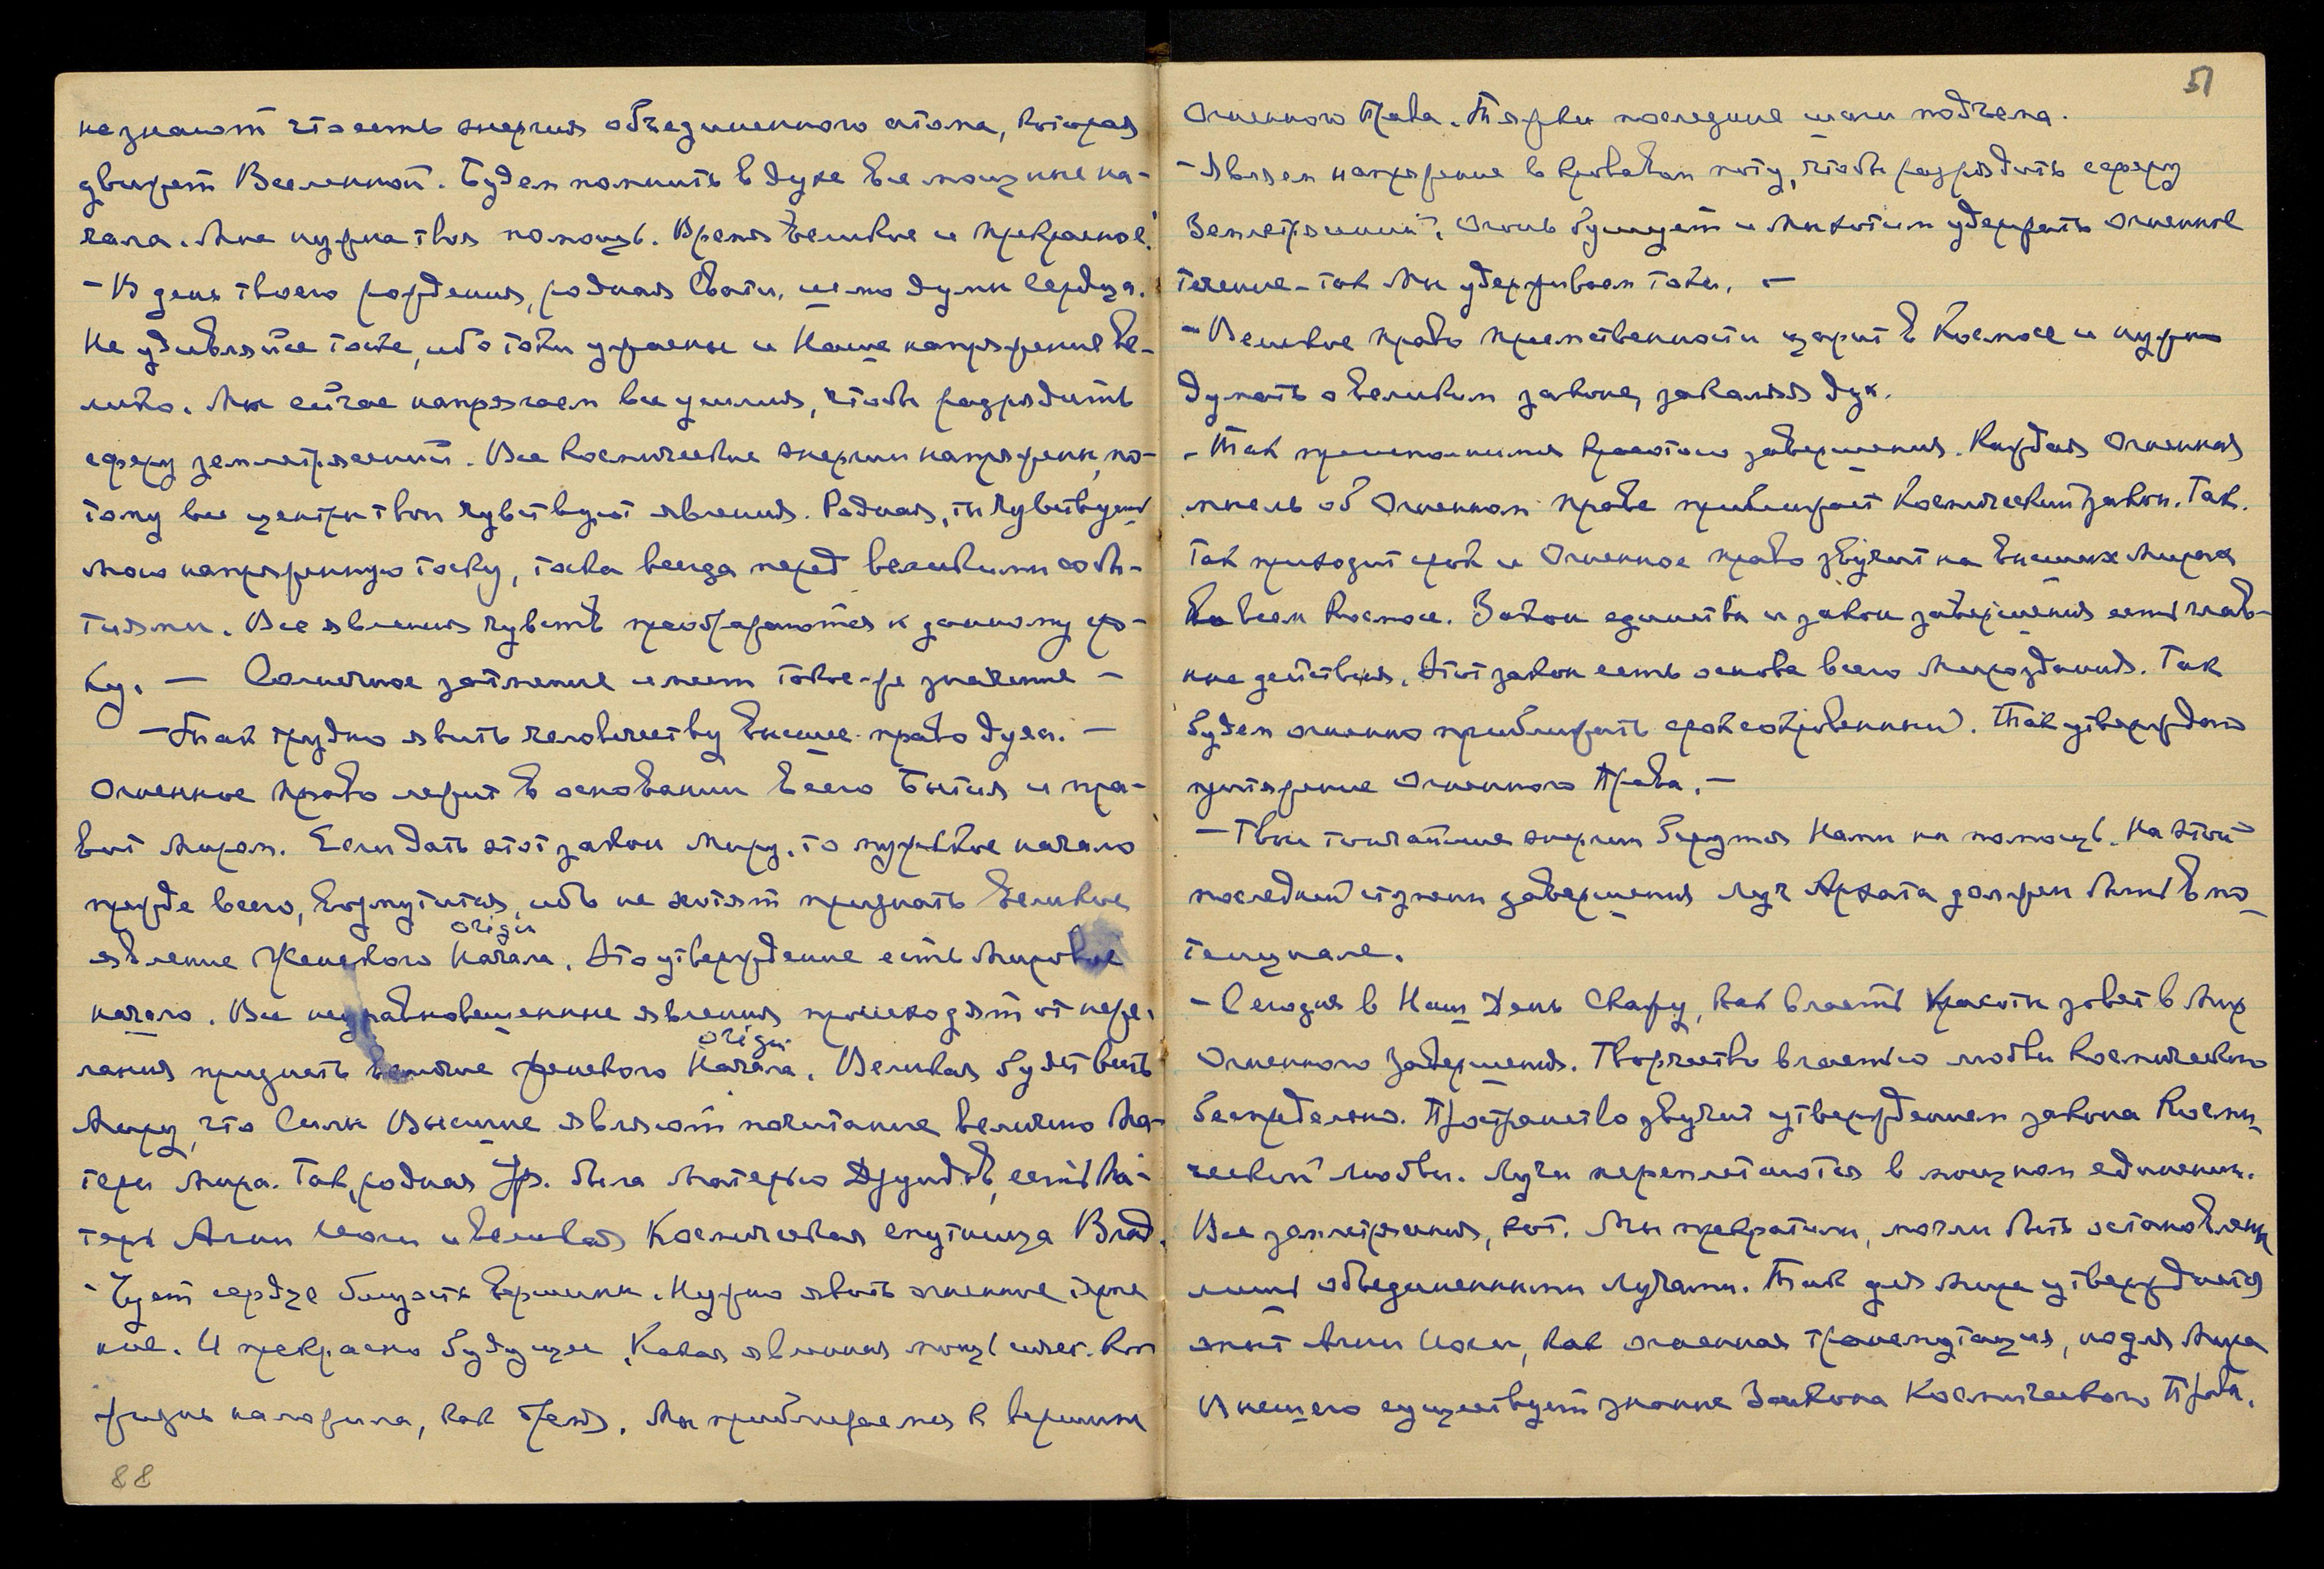 не знают что есть энергия объединенного атома, которая
движет Вселенной. Будем помнить в духе все мощные на-
чала. Мне нужна твоя помощь. Время великое и прекрасное!
- В день твоего рождения, родная Свати, шлю думы сердца.
Не удивляйся тоске, ибо токи ужасны и Наше напряжение ве-
лико. Мы сейчас напрягаем все усилия, чтобы разрядить
сферу землетрясений. Все космические энергии напряжены, по-
тому все центры твои чувствуют явления. Родная, ты чувствуешь
мою напряженную тоску, тоска всегда перед великими собы-
тиями. Все явления чувств преображаются к данному сро-
ку. — Солнечное затмение имеет такое-же значение —
- Так трудно явить человечеству высшее право духа. —
Огненное право лежит в основании всего Бытия и пра-
вит миром. Если дать этот закон миру, то мужское начало
прежде всего, возмутится, ибо не хотят признать великое
origin
явление Женского Начала. Это утверждение есть мировое
начало. Все неуравновешенные явления происходят от неже-
origin
лания признать величие женского Начала. Великая будет весть
миру, что Силы Высшие являют почитание величию Ма-
тери Мира. Так, родная Ур. была Матерью Друидов, есть Ма-
терь Агни Йоги и великая Космическая спутница Влад.
- Чует сердце близость вершины. Нужно явить огненное терпе
ние. И прекрасно будущее. Какая явленная мощь
жизнь наполнена, как . Мы приближаемся к вершине
88
51
Огненного Права. Тяжки последние шаги подъема.
- Являем напряжение в кровавом поту, чтобы разрядить сферу
Землетрясений. Огонь бушует и Мы хотим удержать огненное
течение - так Мы удерживаем токи. —
- Великое право преемственности царит в Космосе и нужно
думать о великом законе, закаляя дух.
- Так преисполнимся красотою завершения. Каждая огненная
мысль об Огненном праве приближает Космический закон. Так.
Так приходит срок и Огненное право звучит на высших мирах
во всем Космосе. Закон единства и закон завершения есть глав-
ные действия. Этот закон есть основа всего Мироздания. Так
будем огненно приближать срок сокровенный. Так утверждаю
притяжение Огненного Права. —
- Твои тончайшие энергии берутся Нами на помощь. На этой
последней ступени завершения луч Архата должен быть в по-
тенциале.
- Сегодня в Наш День Скажу, как власть Красоты зовет в Мир
Огненного Завершения. Творчество властью любви космического
беспредельно. Пространство звучит утверждением закона Косми-
ческой любви. Лучи переплетаются в мощном единении.
Все землетрясения, кот. Мы прекратили, могли быть остановлены
лишь объединенными лучами. Так для мира утверждается
опыт Агни Йоги, как огненная трансмутация, но для Мира
Высшего существует знание Закона Космического Права.